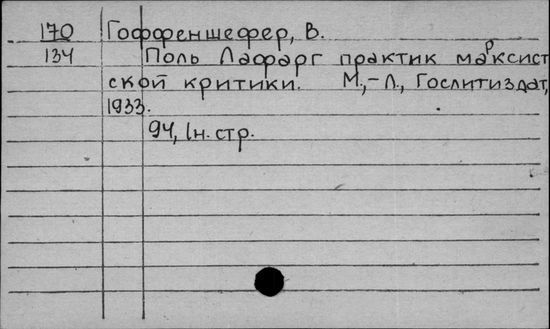 170 Гоффеншефер, В.
134 Поль Лафарг практик марксист
ской критики. М.,-Л., Гослитиздат,
1933.
94, 1н. стр.